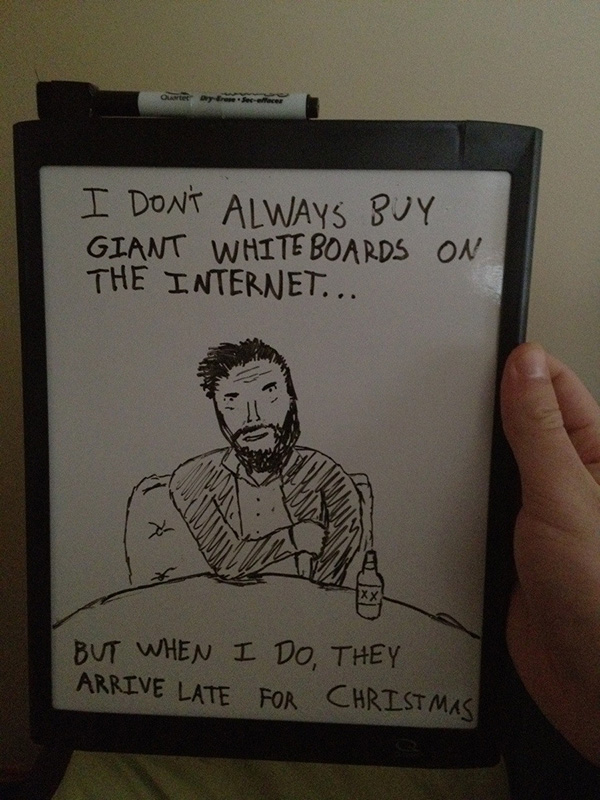 Quartet Dry-Erase • Sec-effaces
I DON'T ALWAYS BUY
GIANT WHITEBOARDS ON
THE INTERNET...
XX
BUT WHEN I DO, THEY
ARRIVE LATE FOR CHRISTMAS